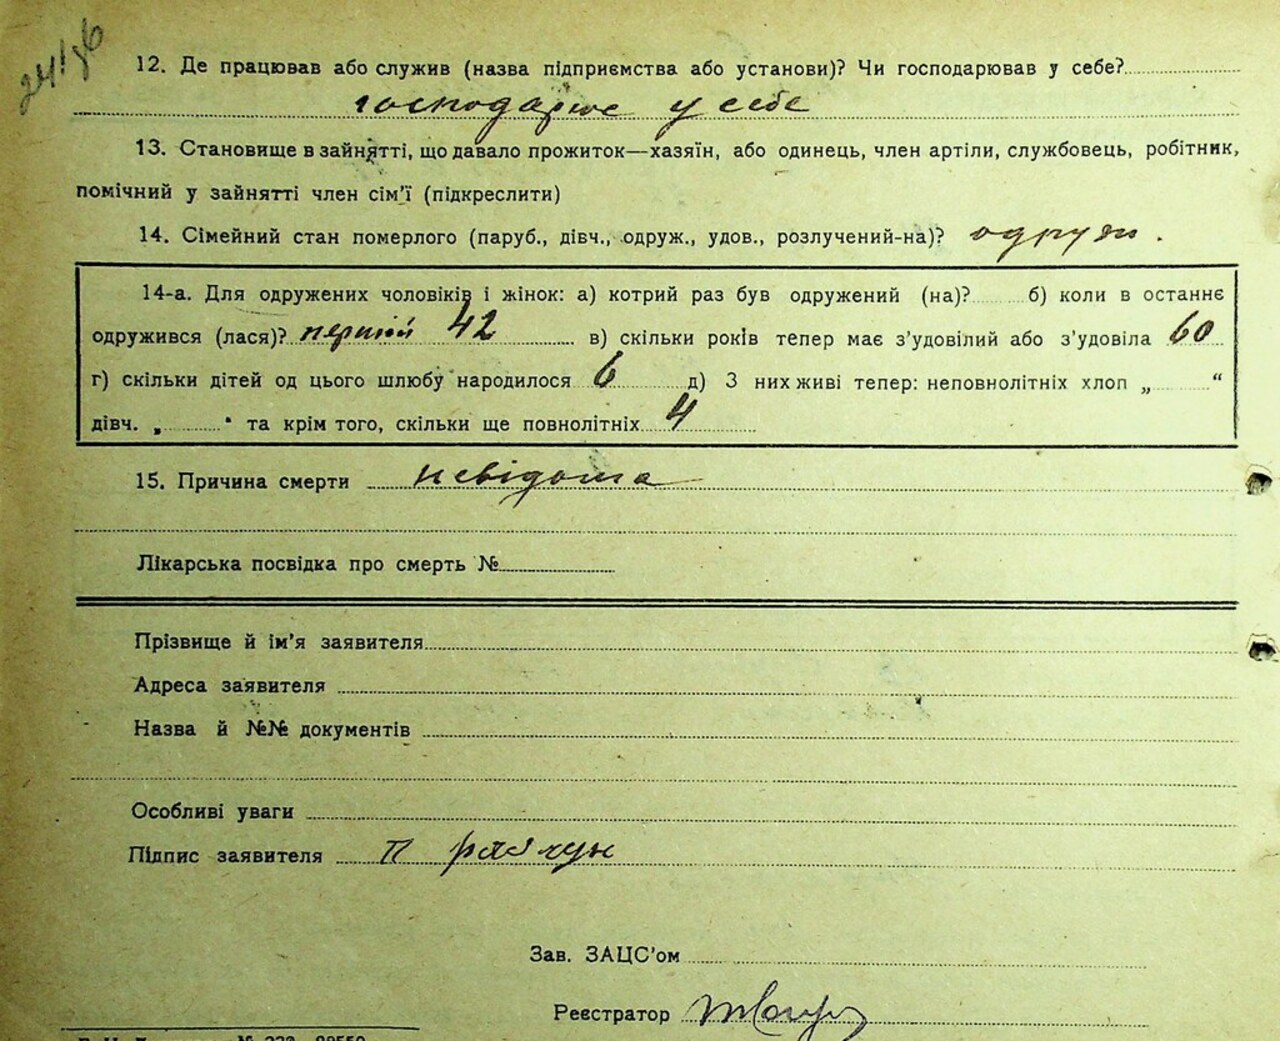 12. Де працював або служив (назва підприємства або установи)? Чи господарював у себе?
господарює у себе
13. Становище в зайнятті, що давало прожиток—хазяїн, або одинець, член артіли, службовець, робітник,
помічний у зайнятті член сім'ї (підкреслити)
14. Сімейний стан померлого (паруб., дівч., одруж., удов., розлучений-на)? одруж.
14-а. Для одружених чоловіків і жінок: а) котрий раз був одружений (на)? б) коли в останнє
одружився (лася)? перший 42 в) скільки років тепер має з'удовілий або з'удовіла 60
г) скільки дітей од цього шлюбу народилося 6 д) З них живі тепер: неповнолітніх хлоп „ “
дівч. „ “ та крім того, скільки ще повнолітніх 4
15. Причина смерти невідома
Лікарська посвідка про смерть №
Прізвище й ім'я заявителя
Адреса заявителя
Назва й №№ документів
Особливі уваги
Підпис заявителя П
Зав. ЗАЦС'ом
Реєстратор